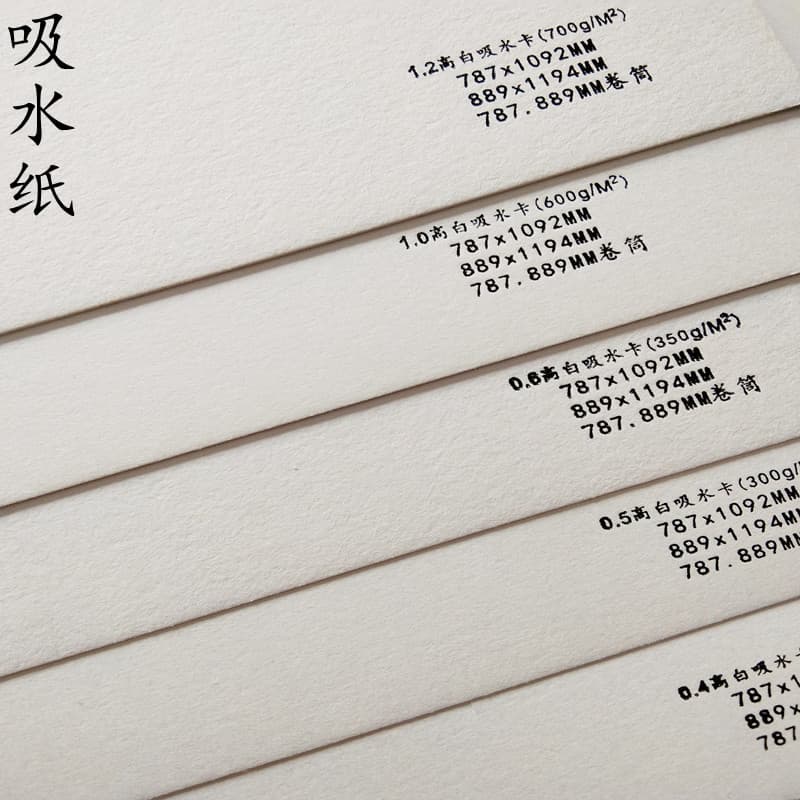 吸水纸
1.2高白吸水卡(700g/M²)
787x1092MM
889x1194MM
787.889MM卷筒
1.0高白吸水卡(600g/M²)
787x1092MM
889x1194MM
787.889MM卷筒
0.6高白吸水卡(350g/M²)
787x1092MM
889x1194MM
787.889MM卷筒
0.5高白吸水卡(300g/
787x1092MM
889x1194MM
787.889MM
0.4高白吸水卡
787x1
889x
787